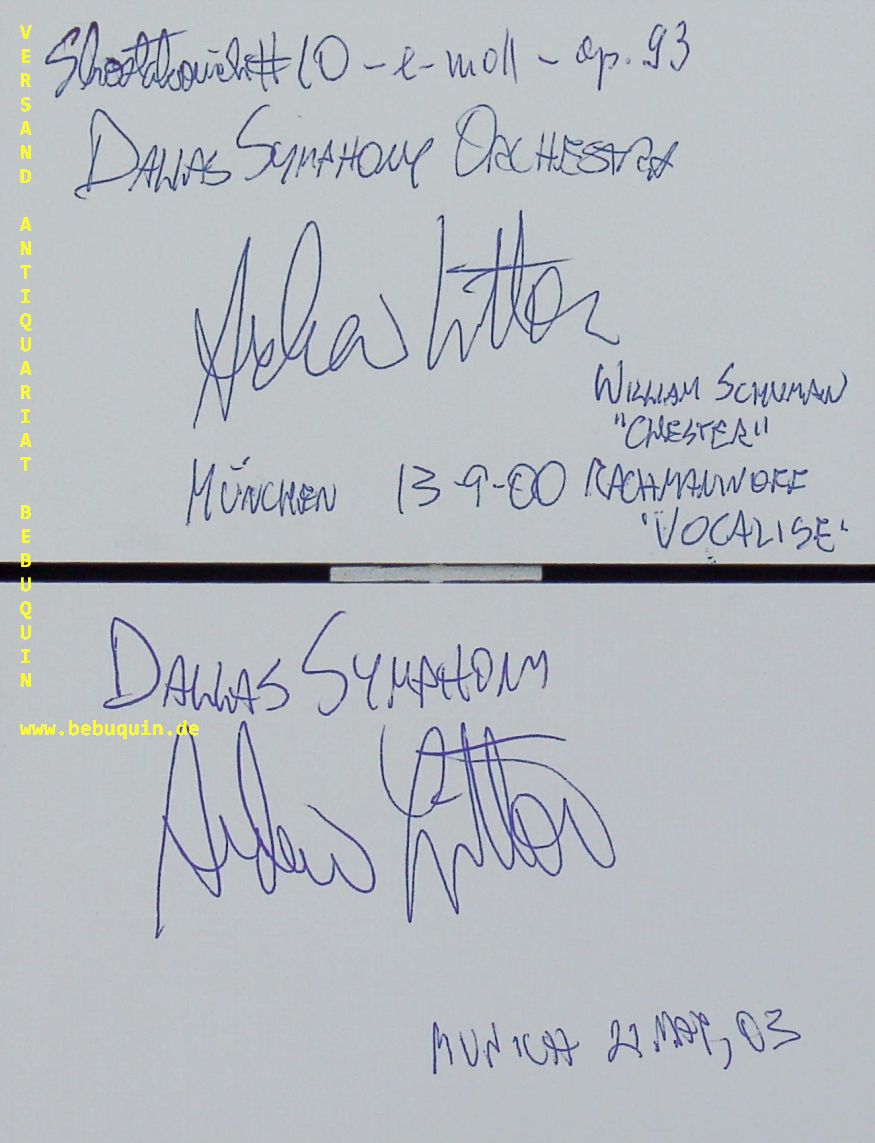 Shostakovich #10 - e-moll - op. 93
DALLAS SYMPHONY ORCHESTRA
Andrew Litton
WILLIAM SCHUMAN
"CHESTER"
MÜNCHEN 13-9-00 RACHMANINOFF
'VOCALISE'
DALLAS SYMPHONY
Andrew Litton
MUNICH 22 MAR, 03
VERSAND ANTIQUARIAT BEBUQUIN
www.bebuquin.de